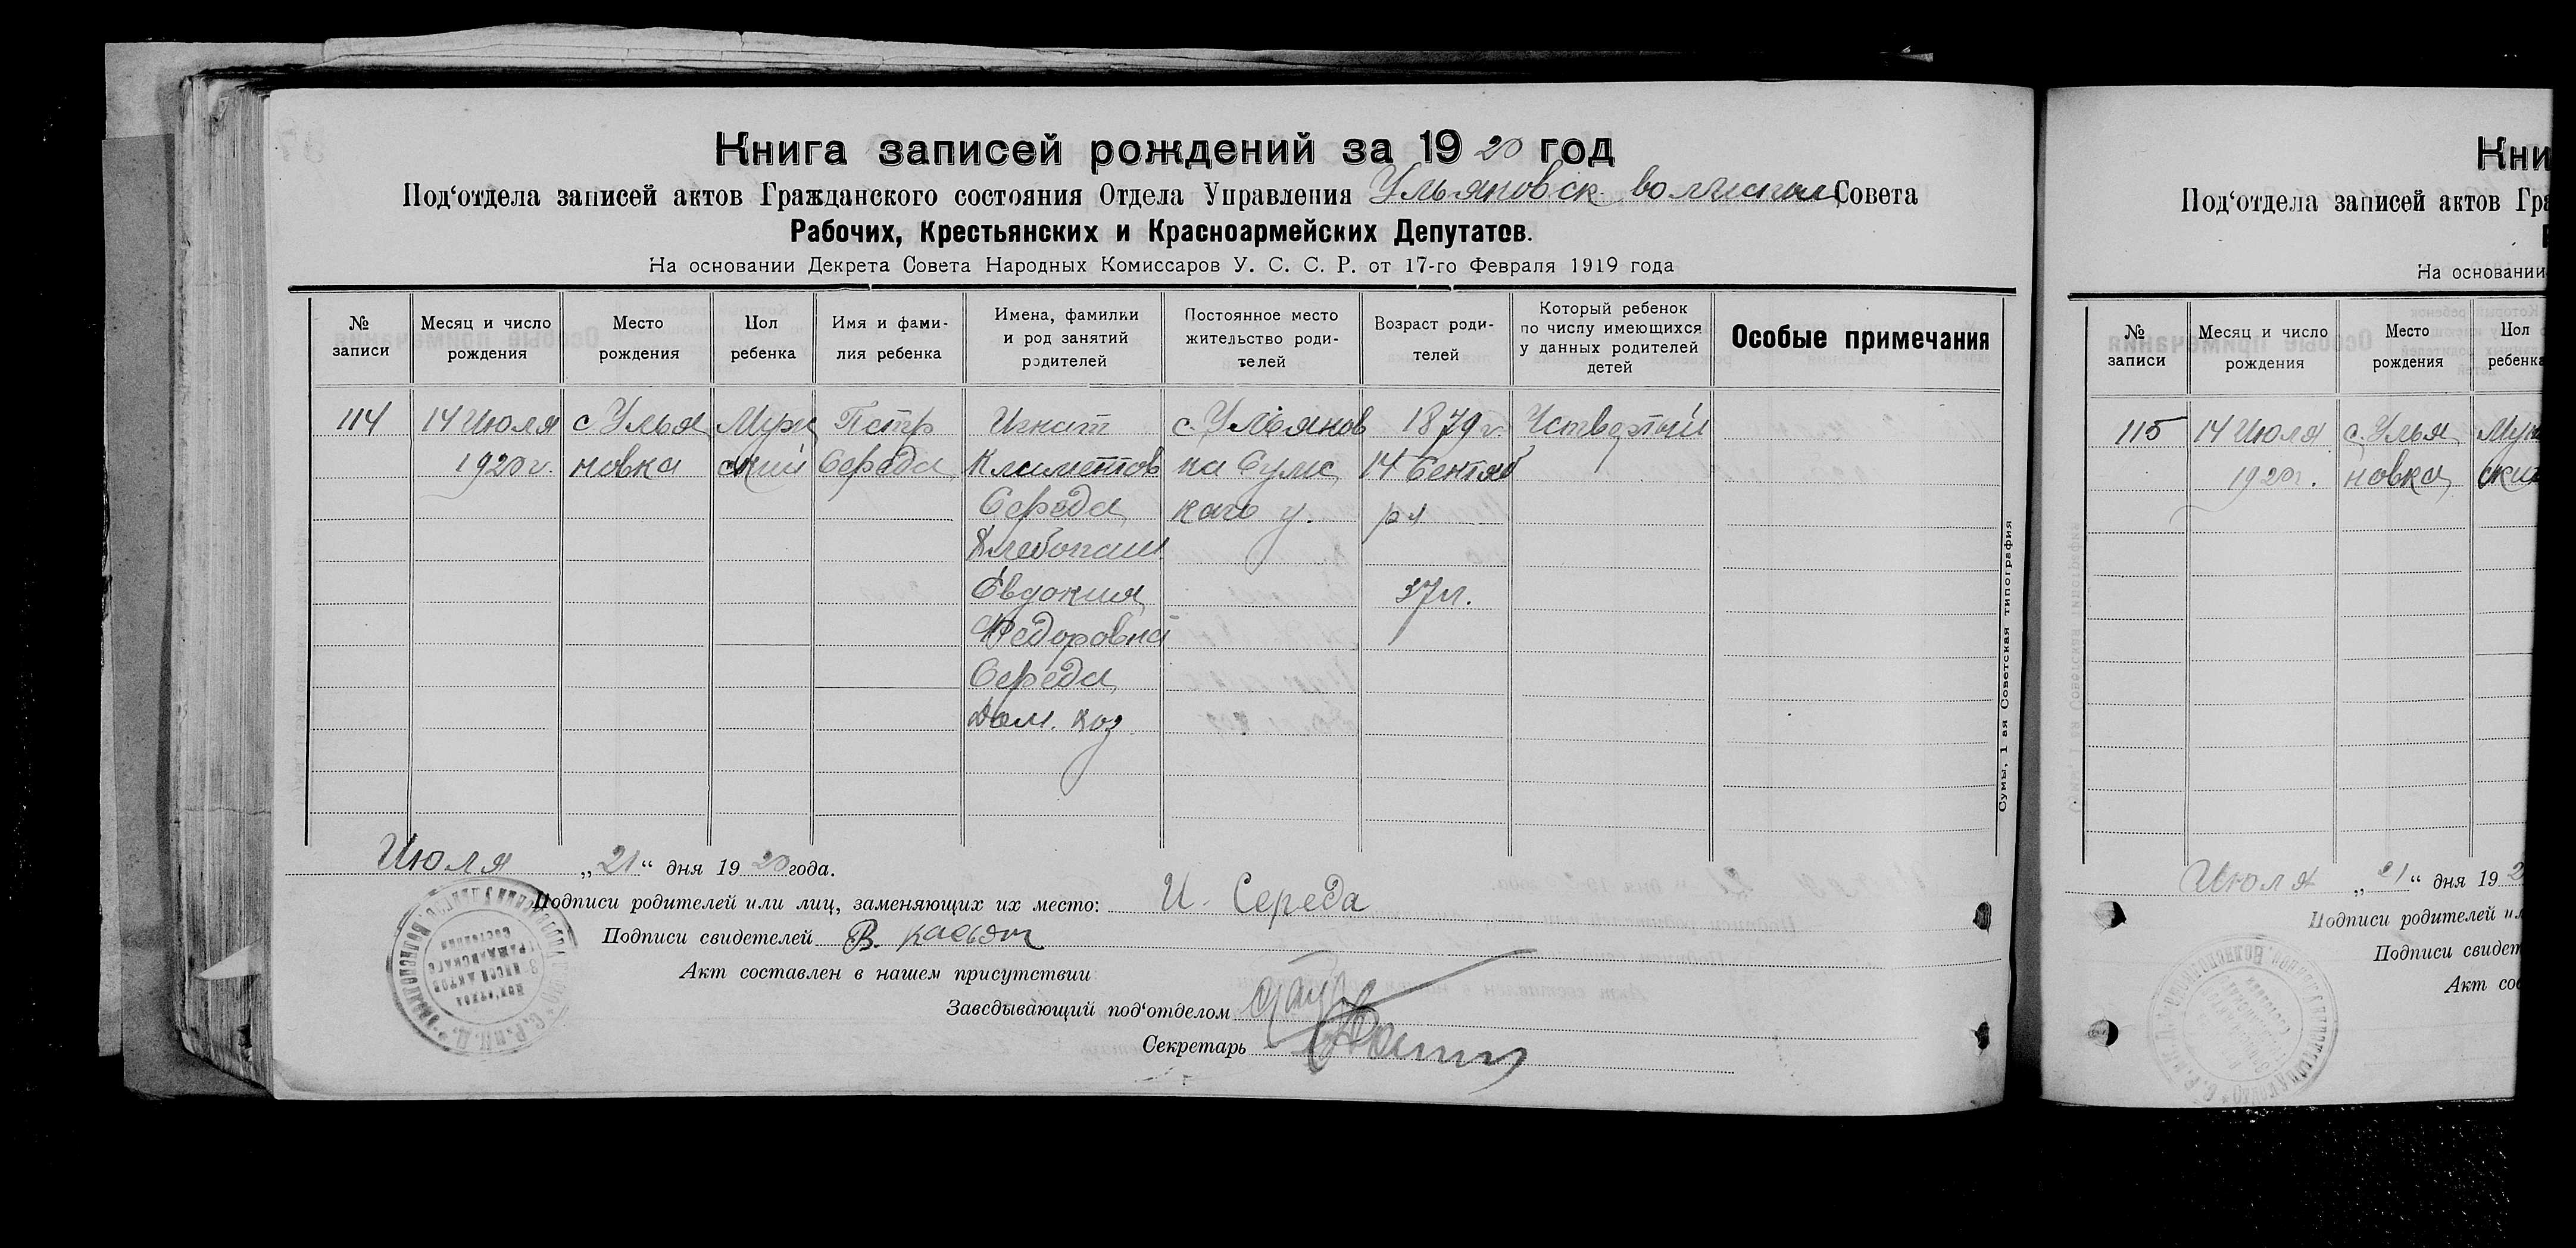 Книга записей рождений за 1920 год
Под‘отдела записей актов Гражданского состояния Отдела Управления Ульяновск. волостн Совета
Рабочих, Крестьянских и Красноармейских Депутатов.
На основании Декрета Совета Народных Комиссаров У. С. С. Р. от 17-го Февраля 1919 года
№ записи
Месяц и число рождения
Место рождения
Пол ребенка
Имя и фами-
лия ребенка
Имена, фамилии
и род занятий
родителей
Постоянное место
жительство роди-
телей
Возраст роди-
телей
Который ребенок
по числу имеющихся
у данных родителей
детей
Особые примечания
114 14 Июля с. Улья Муж Петр Игнат с. Ульянов 1879 г. Четвертый
1920 г. новка ский Середа Климентов ка Сумс 14 Сентяб
Середа кого у. ря
Хлебопаш.
Евдокия 37 л.
Федоровна
Середа
Дом. хоз
Июля „21“ дня 1920 года.
Подписи родителей или лиц, заменяющих их место: И. Середа
Подписи свидетелей В. Касьян
Акт составлен в нашем присутствии
Заведывающий под‘отделом
Секретарь
Сумы, 1 ая Советская типография
Кни
Под‘отдела записей актов Гра
Р
На основании
№ записи
Месяц и число рождения
Место рождения
Пол ребенка
115 14 Июля с. Улья Муж
1920 г. новка ский
Июля „21“ дня 192
Подписи родителей ил
Подписи свидет
Акт сос